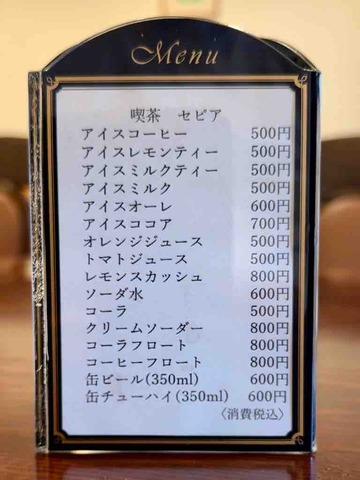 Menu
喫茶 セピア
アイスコーヒー 500円
アイスレモンティー 500円
アイスミルクティー 500円
アイスミルク 500円
アイスオーレ 600円
アイスココア 700円
オレンジジュース 500円
トマトジュース 500円
レモンスカッシュ 800円
ソーダ水 600円
コーラ 500円
クリームソーダー 800円
コーラフロート 800円
コーヒーフロート 800円
缶ビール(350ml) 600円
缶チューハイ(350ml) 600円
〈消費税込〉